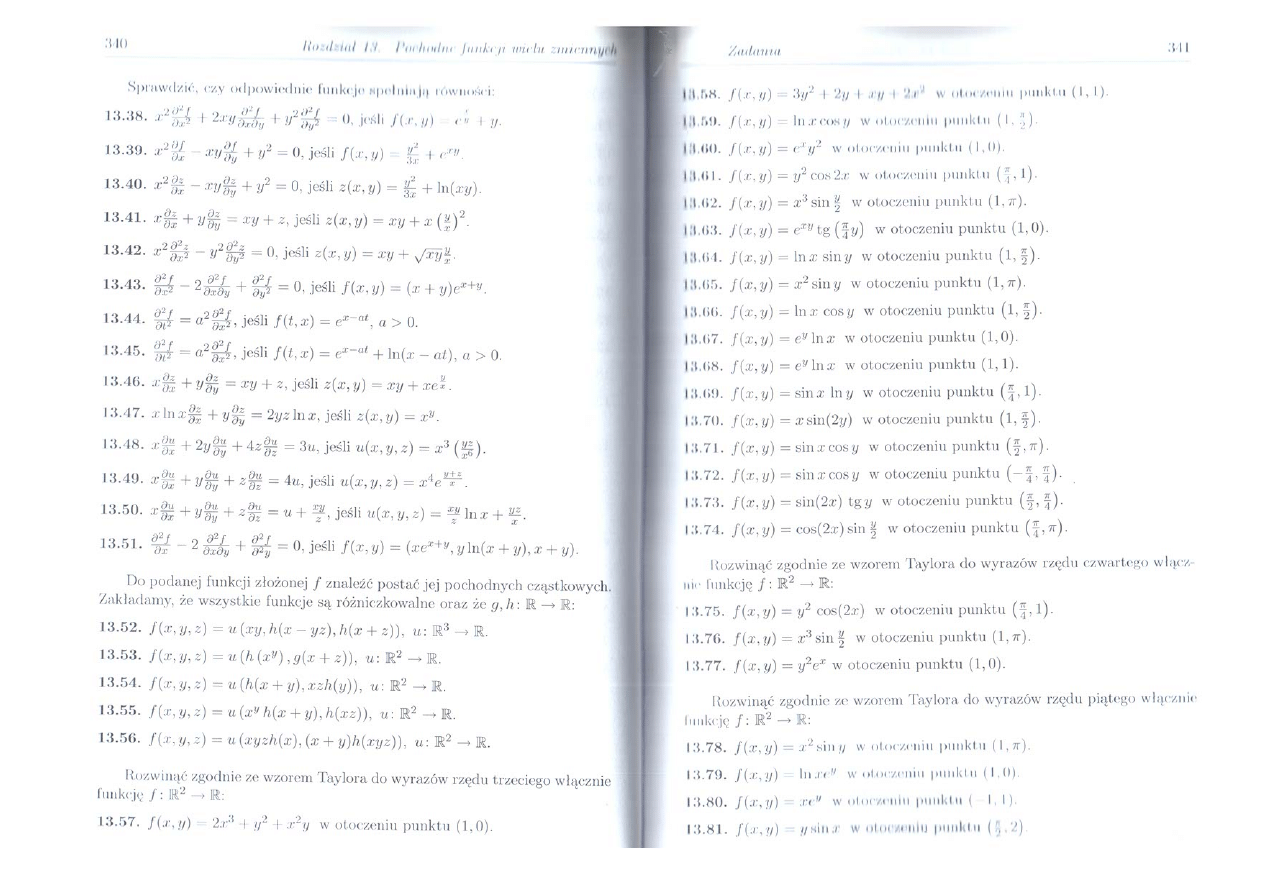 340 Rozdział 13. Pochodne funkcji wielu zmiennych
Sprawdzić, czy odpowiednie funkcje spełniają równości:
13.38. x² ∂²f/∂x² + 2xy ∂²f/∂x∂y + y² ∂²f/∂y² = 0, jeśli f(x, y) = e^(x/y) + y.
13.39. x² ∂f/∂x − xy ∂f/∂y + y² = 0, jeśli f(x, y) = y²/3x + e^(xy).
13.40. x² ∂z/∂x − xy ∂z/∂y + y² = 0, jeśli z(x, y) = y²/3x + ln(xy).
13.41. x ∂z/∂x + y ∂z/∂y = xy + z, jeśli z(x, y) = xy + x (y/x)².
13.42. x² ∂²z/∂x² − y² ∂²z/∂y² = 0, jeśli z(x, y) = xy + √(xy y/x).
13.43. ∂²f/∂x² − 2 ∂²f/∂x∂y + ∂²f/∂y² = 0, jeśli f(x, y) = (x + y)e^(x+y).
13.44. ∂²f/∂t² = a² ∂²f/∂x², jeśli f(t, x) = e^(x−at), a > 0.
13.45. ∂²f/∂t² = a² ∂²f/∂x², jeśli f(t, x) = e^(x−at) + ln(x − at), a > 0.
13.46. x ∂z/∂x + y ∂z/∂y = xy + z, jeśli z(x, y) = xy + xe^(y/x).
13.47. x ln x ∂z/∂x + y ∂z/∂y = 2yz ln x, jeśli z(x, y) = x^y.
13.48. x ∂u/∂x + 2y ∂u/∂y + 4z ∂u/∂z = 3u, jeśli u(x, y, z) = x³ (yz/x⁶).
13.49. x ∂u/∂x + y ∂u/∂y + z ∂u/∂z = 4u, jeśli u(x, y, z) = x⁴e^((y+z)/x).
13.50. x ∂u/∂x + y ∂u/∂y + z ∂u/∂z = u + xy/z, jeśli u(x, y, z) = xy/z ln x + yz/x.
13.51. ∂²f/∂x − 2 ∂²f/∂x∂y + ∂²f/∂²y = 0, jeśli f(x, y) = (xe^(x+y), y ln(x + y), x + y).
Do podanej funkcji złożonej f znaleźć postać jej pochodnych cząstkowych.
Zakładamy, że wszystkie funkcje są różniczkowalne oraz że g, h: ℝ → ℝ:
13.52. f(x, y, z) = u (xy, h(x − yz), h(x + z)), u: ℝ³ → ℝ.
13.53. f(x, y, z) = u (h (x^y) , g(x + z)), u: ℝ² → ℝ.
13.54. f(x, y, z) = u (h(x + y), xzh(y)), u: ℝ² → ℝ.
13.55. f(x, y, z) = u (x^y h(x + y), h(xz)), u: ℝ² → ℝ.
13.56. f(x, y, z) = u (xyzh(x), (x + y)h(xyz)), u: ℝ² → ℝ.
Rozwinąć zgodnie ze wzorem Taylora do wyrazów rzędu trzeciego włącznie
funkcję f: ℝ² → ℝ:
13.57. f(x, y) = 2x³ + y² + x²y w otoczeniu punktu (1, 0).
Zadania 341
13.58. f(x, y) = 3y² + 2y + xy + 2x² w otoczeniu punktu (1, 1).
13.59. f(x, y) = ln x cos y w otoczeniu punktu (1, π/2).
13.60. f(x, y) = e^x y² w otoczeniu punktu (1, 0).
13.61. f(x, y) = y² cos 2x w otoczeniu punktu (π/4, 1).
13.62. f(x, y) = x³ sin y/2 w otoczeniu punktu (1, π).
13.63. f(x, y) = e^(xy) tg (π/4 y) w otoczeniu punktu (1, 0).
13.64. f(x, y) = ln x sin y w otoczeniu punktu (1, π/2).
13.65. f(x, y) = x² sin y w otoczeniu punktu (1, π).
13.66. f(x, y) = ln x cos y w otoczeniu punktu (1, π/2).
13.67. f(x, y) = e^y ln x w otoczeniu punktu (1, 0).
13.68. f(x, y) = e^y ln x w otoczeniu punktu (1, 1).
13.69. f(x, y) = sin x ln y w otoczeniu punktu (π/4, 1).
13.70. f(x, y) = x sin(2y) w otoczeniu punktu (1, π/2).
13.71. f(x, y) = sin x cos y w otoczeniu punktu (π/2, π).
13.72. f(x, y) = sin x cos y w otoczeniu punktu (−π/4, π/4).
13.73. f(x, y) = sin(2x) tg y w otoczeniu punktu (π/2, π/4).
13.74. f(x, y) = cos(2x) sin y/2 w otoczeniu punktu (π/4, π).
Rozwinąć zgodnie ze wzorem Taylora do wyrazów rzędu czwartego włącz-
nie funkcję f: ℝ² → ℝ:
13.75. f(x, y) = y² cos(2x) w otoczeniu punktu (π/4, 1).
13.76. f(x, y) = x³ sin y/2 w otoczeniu punktu (1, π).
13.77. f(x, y) = y²e^x w otoczeniu punktu (1, 0).
Rozwinąć zgodnie ze wzorem Taylora do wyrazów rzędu piątego włącznie
funkcję f: ℝ² → ℝ:
13.78. f(x, y) = x² sin y w otoczeniu punktu (1, π).
13.79. f(x, y) = ln xe^y w otoczeniu punktu (1, 0).
13.80. f(x, y) = xe^y w otoczeniu punktu (−1, 1).
13.81. f(x, y) = y sin x w otoczeniu punktu (π/2, 2).